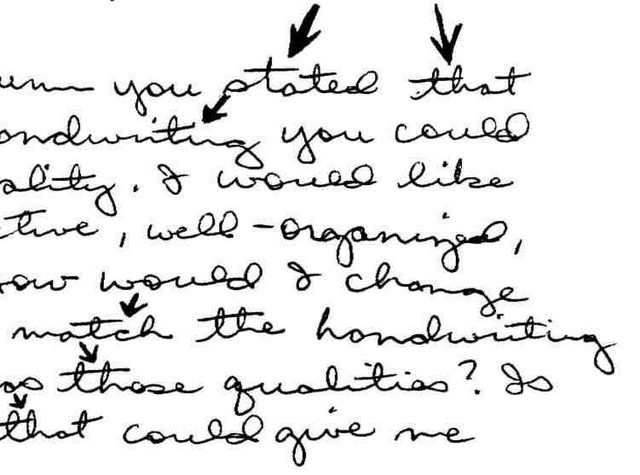 you stated that
handwriting you could
ality. I would like
ctive, well-organized,
how would I change
match the handwriting
has those qualities? Is
that could give me